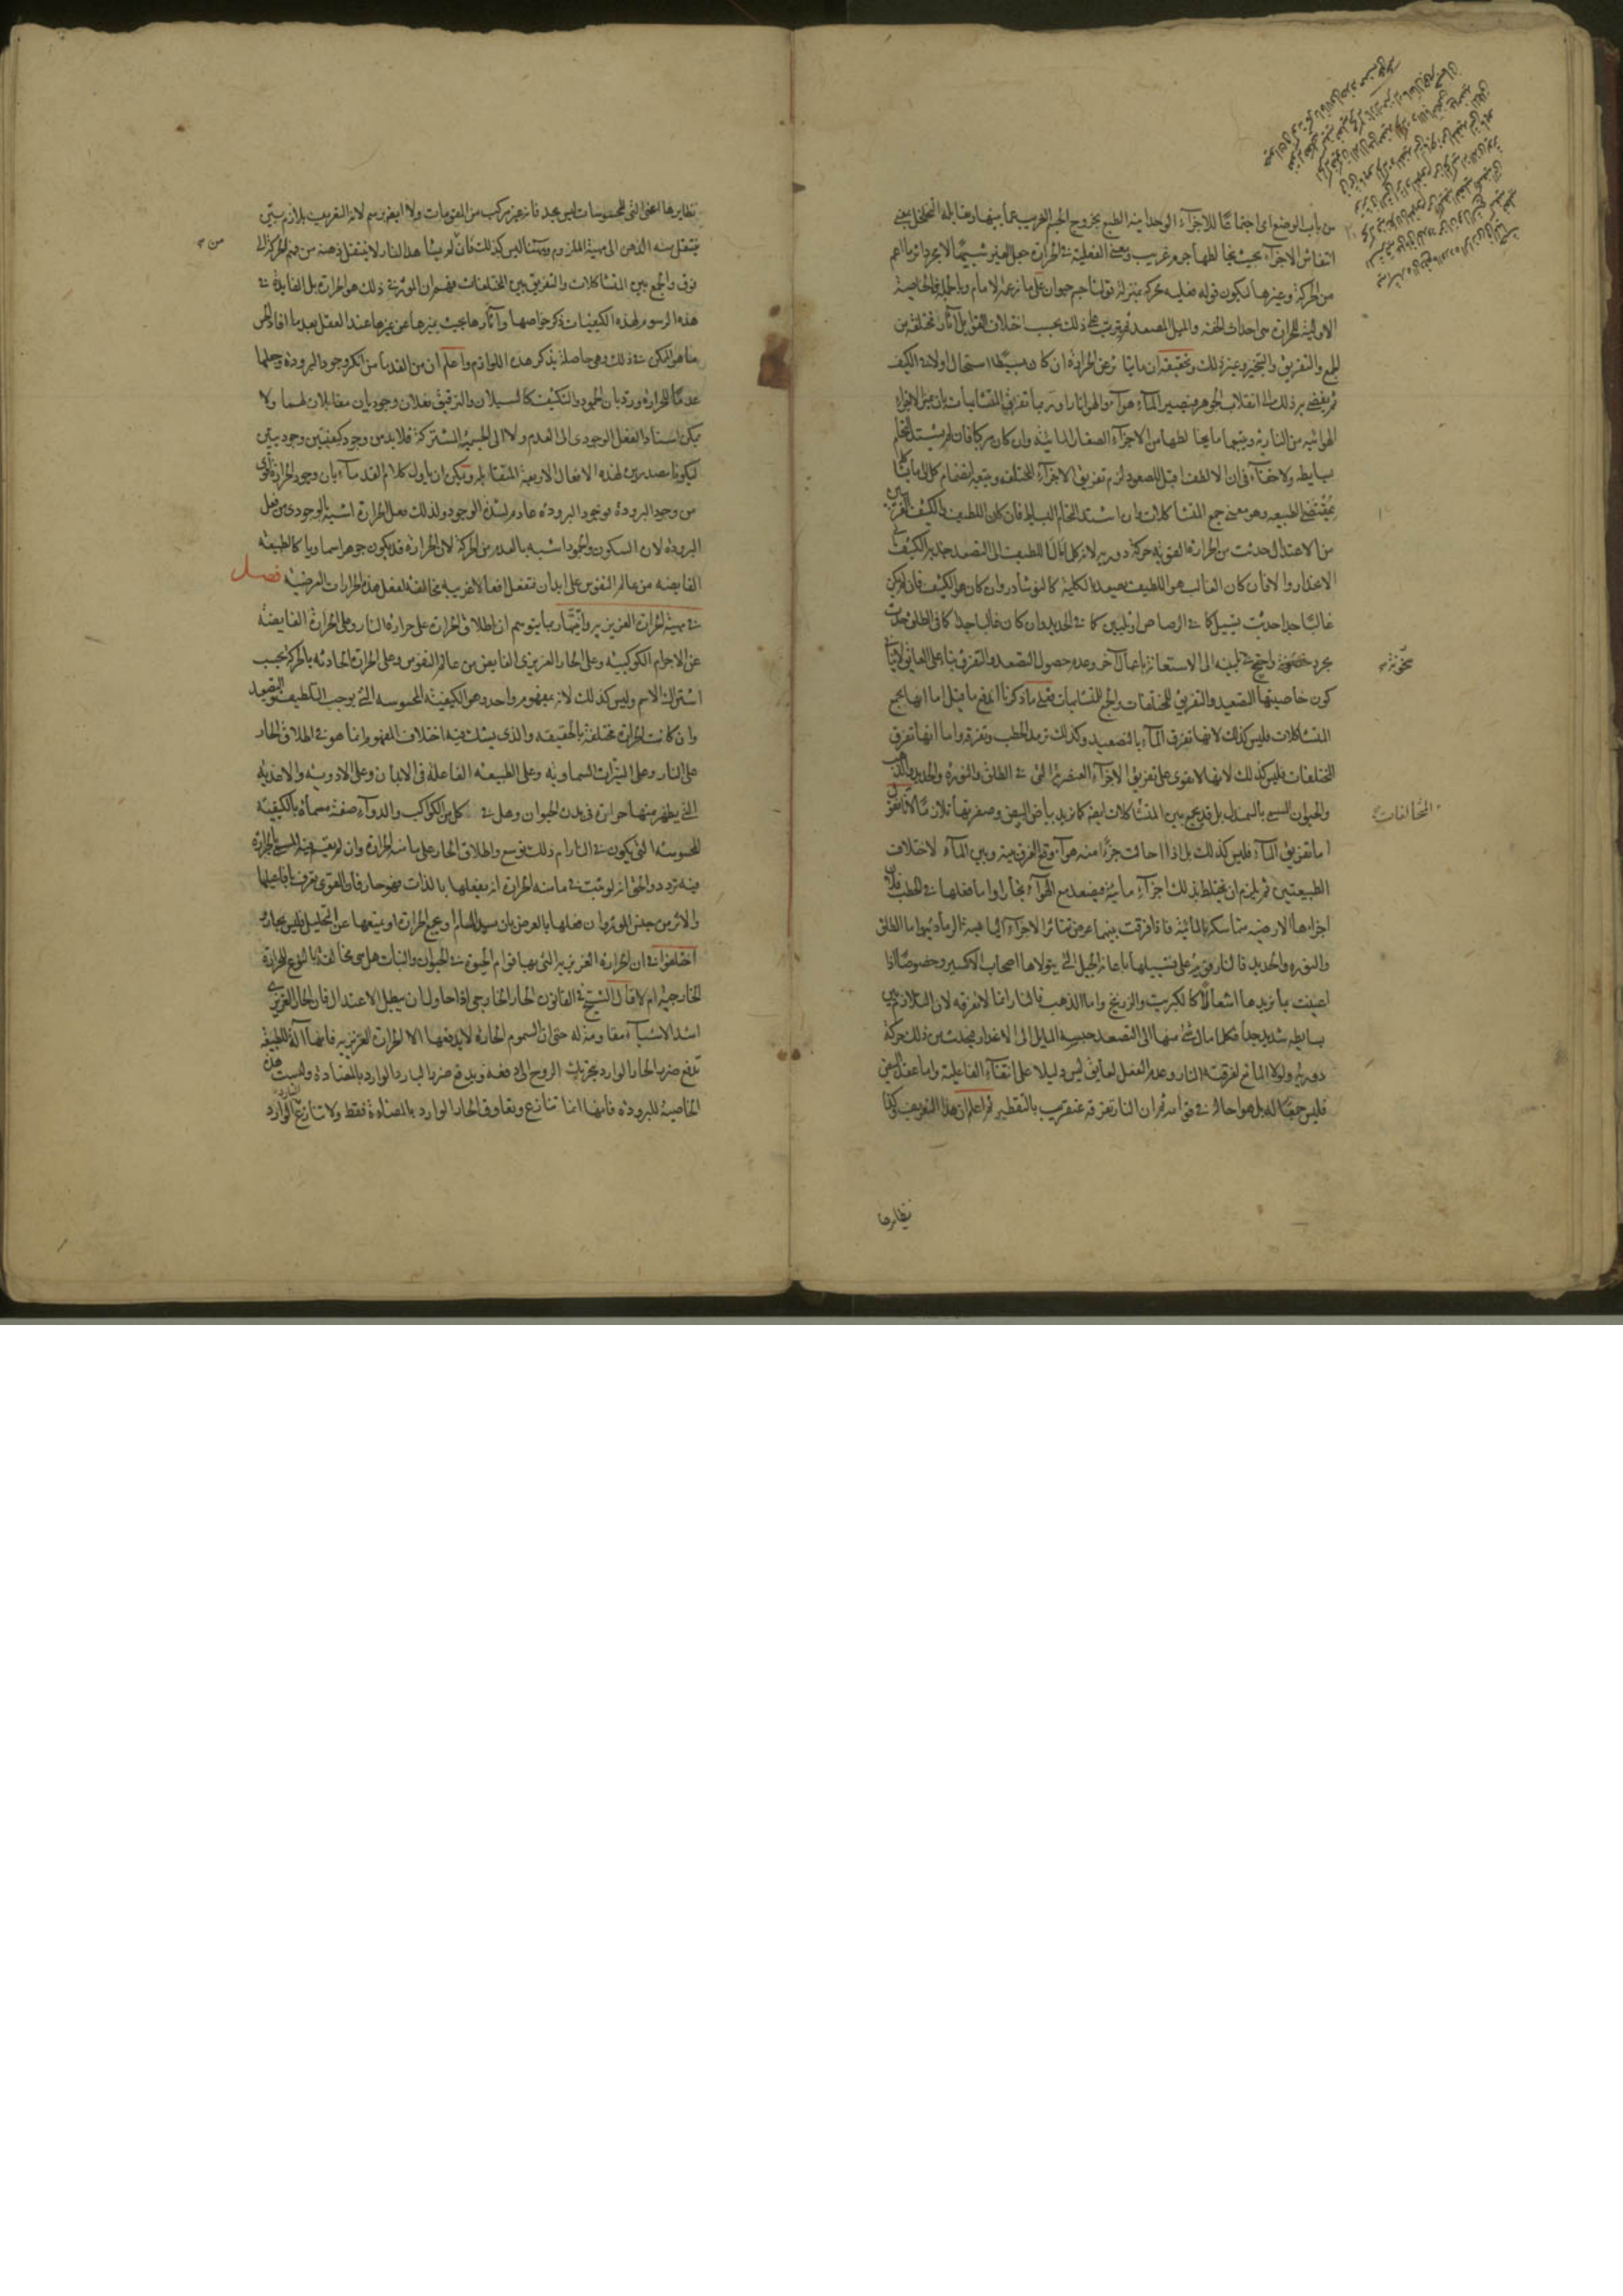 من باب الوضع اى اجتماعًا للاجزاء الوحدانية الطبع بخروج الجسم الغريب عما بينها ومقابله التخلخل بمعنى
انتفاش الاجزاء بحيث يخالطها جرم غريب ومعنى الفعلية فى الحرارة جعل الغير شبيهًا لا بمجرد اثر ما اعم
من الحركة وغيرها فيكون قوله فعلية محركة بمنزلة قولنا جسم حيوان على ما زعمه الامام وبالجملة الخاصية
الاولية للحرارة هى احداث الخفة والميل المصعد ثم يترتب على ذلك بحسب اختلاف القوابل آثار مختلفة من
الجمع والتفريق والتبخير وغير ذلك وتحقيقه ان ما يتأثر عن الحرارة ان كان بسيطًا استحال اولا فى الكيف
ثم يفضى به ذلك الى انقلاب الجوهر فيصير الماء هواء والهواء نارا وربما تفرق المتشابهات بان تميز الاجزاء
الهوائية من النارية ويتبعها ما يخالطها من الاجزاء الصغار المائية وان كان مركبا فان لم يشتد التحام
بسايطه ولا خفاء فى ان الالطف اقبل للصعود لزم تفريق الاجزاء المختلفة ويتبعه انضمام كل الى ما يشاكله
بمقتضى الطبيعة وهو معنى جمع المتشاكلات وان اشتد التحام البسايط فان كان اللطيف والكثيف قريبين
من الاعتدال حدثت من الحرارة القوية حركة دورية لانه كلما مال اللطيف الى التصعد جذبه الكثيف
الى الانحدار والا فان كان الغالب هو اللطيف يصعد بالكلية كالنوشادر وان كان هو الكثيف فان لم يكن
غالبًا جدا حدث تسييل كما فى الرصاص او تليين كما فى الحديد وان كان غالبا جدا كما فى الطلق حدث
مجرد سخونة واحتيج فى تليينه الى الاستعانة باعمال اخر وعدم حصول التصعد والتفرق بناء على العايق لا ينافى
كون خاصيتها التصعيد والتفريق للمختلفات والجمع للمتشابهات فعلى ما ذكرنا اندفع ما قيل اما انها يجمع
المتشاكلات فليس كذلك لانها تفرق الماء بالتصعيد وكذلك ترمد الحطب وتفرقه واما انها تفرق
المختلفات فليس كذلك لانها لا تقوى على تفريق الاجزاء العنصرية التى فى الطلق والنورة والحديد والذهب
والحيوان المسمى بالسمندل بل قد يجمع بين المتشاكلات ايضا كما تزيد بياض البيض وصفرته تلازمًا لانا نقول
اما تفريق الماء فليس كذلك بل اذا احالت جزءًا منه هواء وقع الفرق بينه وبين الماء لاختلاف
الطبيعتين ثم يلزم ان يختلط بذلك اجزاء مائية فيصعد مع الهواء بخارا واما فعلها فى الحطب فلان
اجزاءها الارضية متماسكة بالمائية فاذا فرقت بينهما عرض تناثر الاجزاء اليابسة الرمادية واما الطلق
والنورة والحديد فالنار قوية على تسييلها باعانة الحيل التى يتولاها اصحاب الاكسير وخصوصًا اذا
اعينت بما يزيدها اشتعالًا كالكبريت والزرنيخ واما الذهب فالنار انما لا تفرقه لان التلازم بين
بسايطه شديد جدا فكلما مال شئ منها الى التصعد حبسه المايل الى الانحدار فيحدث من ذلك حركة
دورية ولولا المانع لفرقته النار وعدم الفعل لعايق ليس دليلا على انتفاء الفاعلية واما عقد البيض
فليس جمعًا له بل هو احالة فى قوامه ثم ان النار تفرقه عنقريب بالتقطير ثم اعلم ان هذا التعريف وكذا
سخونة
المختلفات
نظايرها
نظايرها اعنى التى للمحسوسات ليس بحد فانه غير مركب من المقومات ولا ايضا برسم لانه التعريف بلازم بين
ينتقل منه الذهن الى مهية الملزوم وههنا ليس كذلك فان لم يشاهد النار لا ينتقل ذهنه من فهم المحركة الى
فوق والجمع بين المتشاكلات والتفريق بين المختلفات فهم ان المؤثر فى ذلك هو الحرارة بل الفايدة فى
هذه الرسوم لهذه الكيفيات ذكر خواصها وآثارها بحيث يميزها عن غيرها عند العقل بعد ما افاد الحس
ما هو الممكن فى ذلك وهى حاصلة بذكر هذه اللوازم واعلم ان من القدما من انكر وجود البرودة وجعلها
عدمًا للحرارة ورد بان الجمود والتكثيف كالسيلان والترقيق فعلان وجوديان متقابلان لهما ولا
يمكن اسناد الفعل الوجودى الى العدم ولا الى الجسمية المشتركة فلا بد من وجود كيفيتين وجوديتين
ليكونا مصدرين لهذه الافعال الاربعة المتقابلة ويمكن ان ياول كلام القدماء بان وجود الحرارة اقوى
من وجود البرودة فوجود البرودة عادم لشدة الوجود ولذلك فعل الحرارة اشبه بالوجودى من فعل
البرودة لان السكون والجمود اشبه بالعدم من الحركة لان الحرارة قد يكون جوهرا سماويا كالطبيعة
الفايضة من عالم النفوس على ابدان تنفعل افعالا غريبة مخالفة لفعل هذه الحرارات العرضية فصل
فى مهية الحرارة الغريزية وانيتها ربما يتوهم ان اطلاق الحرارة على حرارة النار وعلى الحرارة الفايضة
عن الاجرام الكوكبية وعلى الحار الغريزى الفايض من عالم النفوس وعلى الحرارة الحادثة بالحركة بحسب
اشتراك الاسم وليس كذلك لانه مفهوم واحد وهو الكيفية المحسوسة التى يوجب التلطيف والتصعد
وان كانت الحرارة مختلفة بالحقيقة والذى يشك فيه اختلاف المفهوم انما هو فى اطلاق الحار
على النار وعلى النيرات السماوية وعلى الطبيعة الفاعلة فى الابدان وعلى الادوية والاغذية
التى يظهر منها حرارة فى بدن الحيوان وهل فى كل من الكواكب والدواء صفة مسماة بالكيفية
المحسوسة التى يكون فى النار ام ذلك توسع واطلاق الحار على ما منه الحرارة وان لم يقم فيه المسمى بالحرارة
فيه تردد والحق انه لو ثبت فى ما منه الحرارة انه يفعلها بالذات فهو حار فان القوى تعرف بافاعيلها
والاثر من جنس المؤثر وان فعلها بالعرض بان يسهل المسام او يجمع الحرارة او يمنعها عن التحليل فليس بحار
اختلفوا فى ان الحرارة الغريزية التى بها قوام الحيوة فى الحيوان والنبات هل هى مخالفة بالنوع للحرارة
الخارجية ام لا قال الشيخ فى القانون الحار الخارجى اذا حاول ان يبطل الاعتدال فان الحار الغريزى
اشد الاشياء مقاومة له حتى ان السموم الحارة لا يدفعها الا الحرارة الغريزية فانها آلة للطبيعة
تدفع ضرر الحار الوارد بتحريك الروح الى دفعه ويدفع ضرر البارد الوارد بالمضادة وليست هذه
الخاصية للبرودة فانها انما تنازع وتعاوق الحار الوارد بالمضادة فقط ولا تنازع البارد الوارد
من